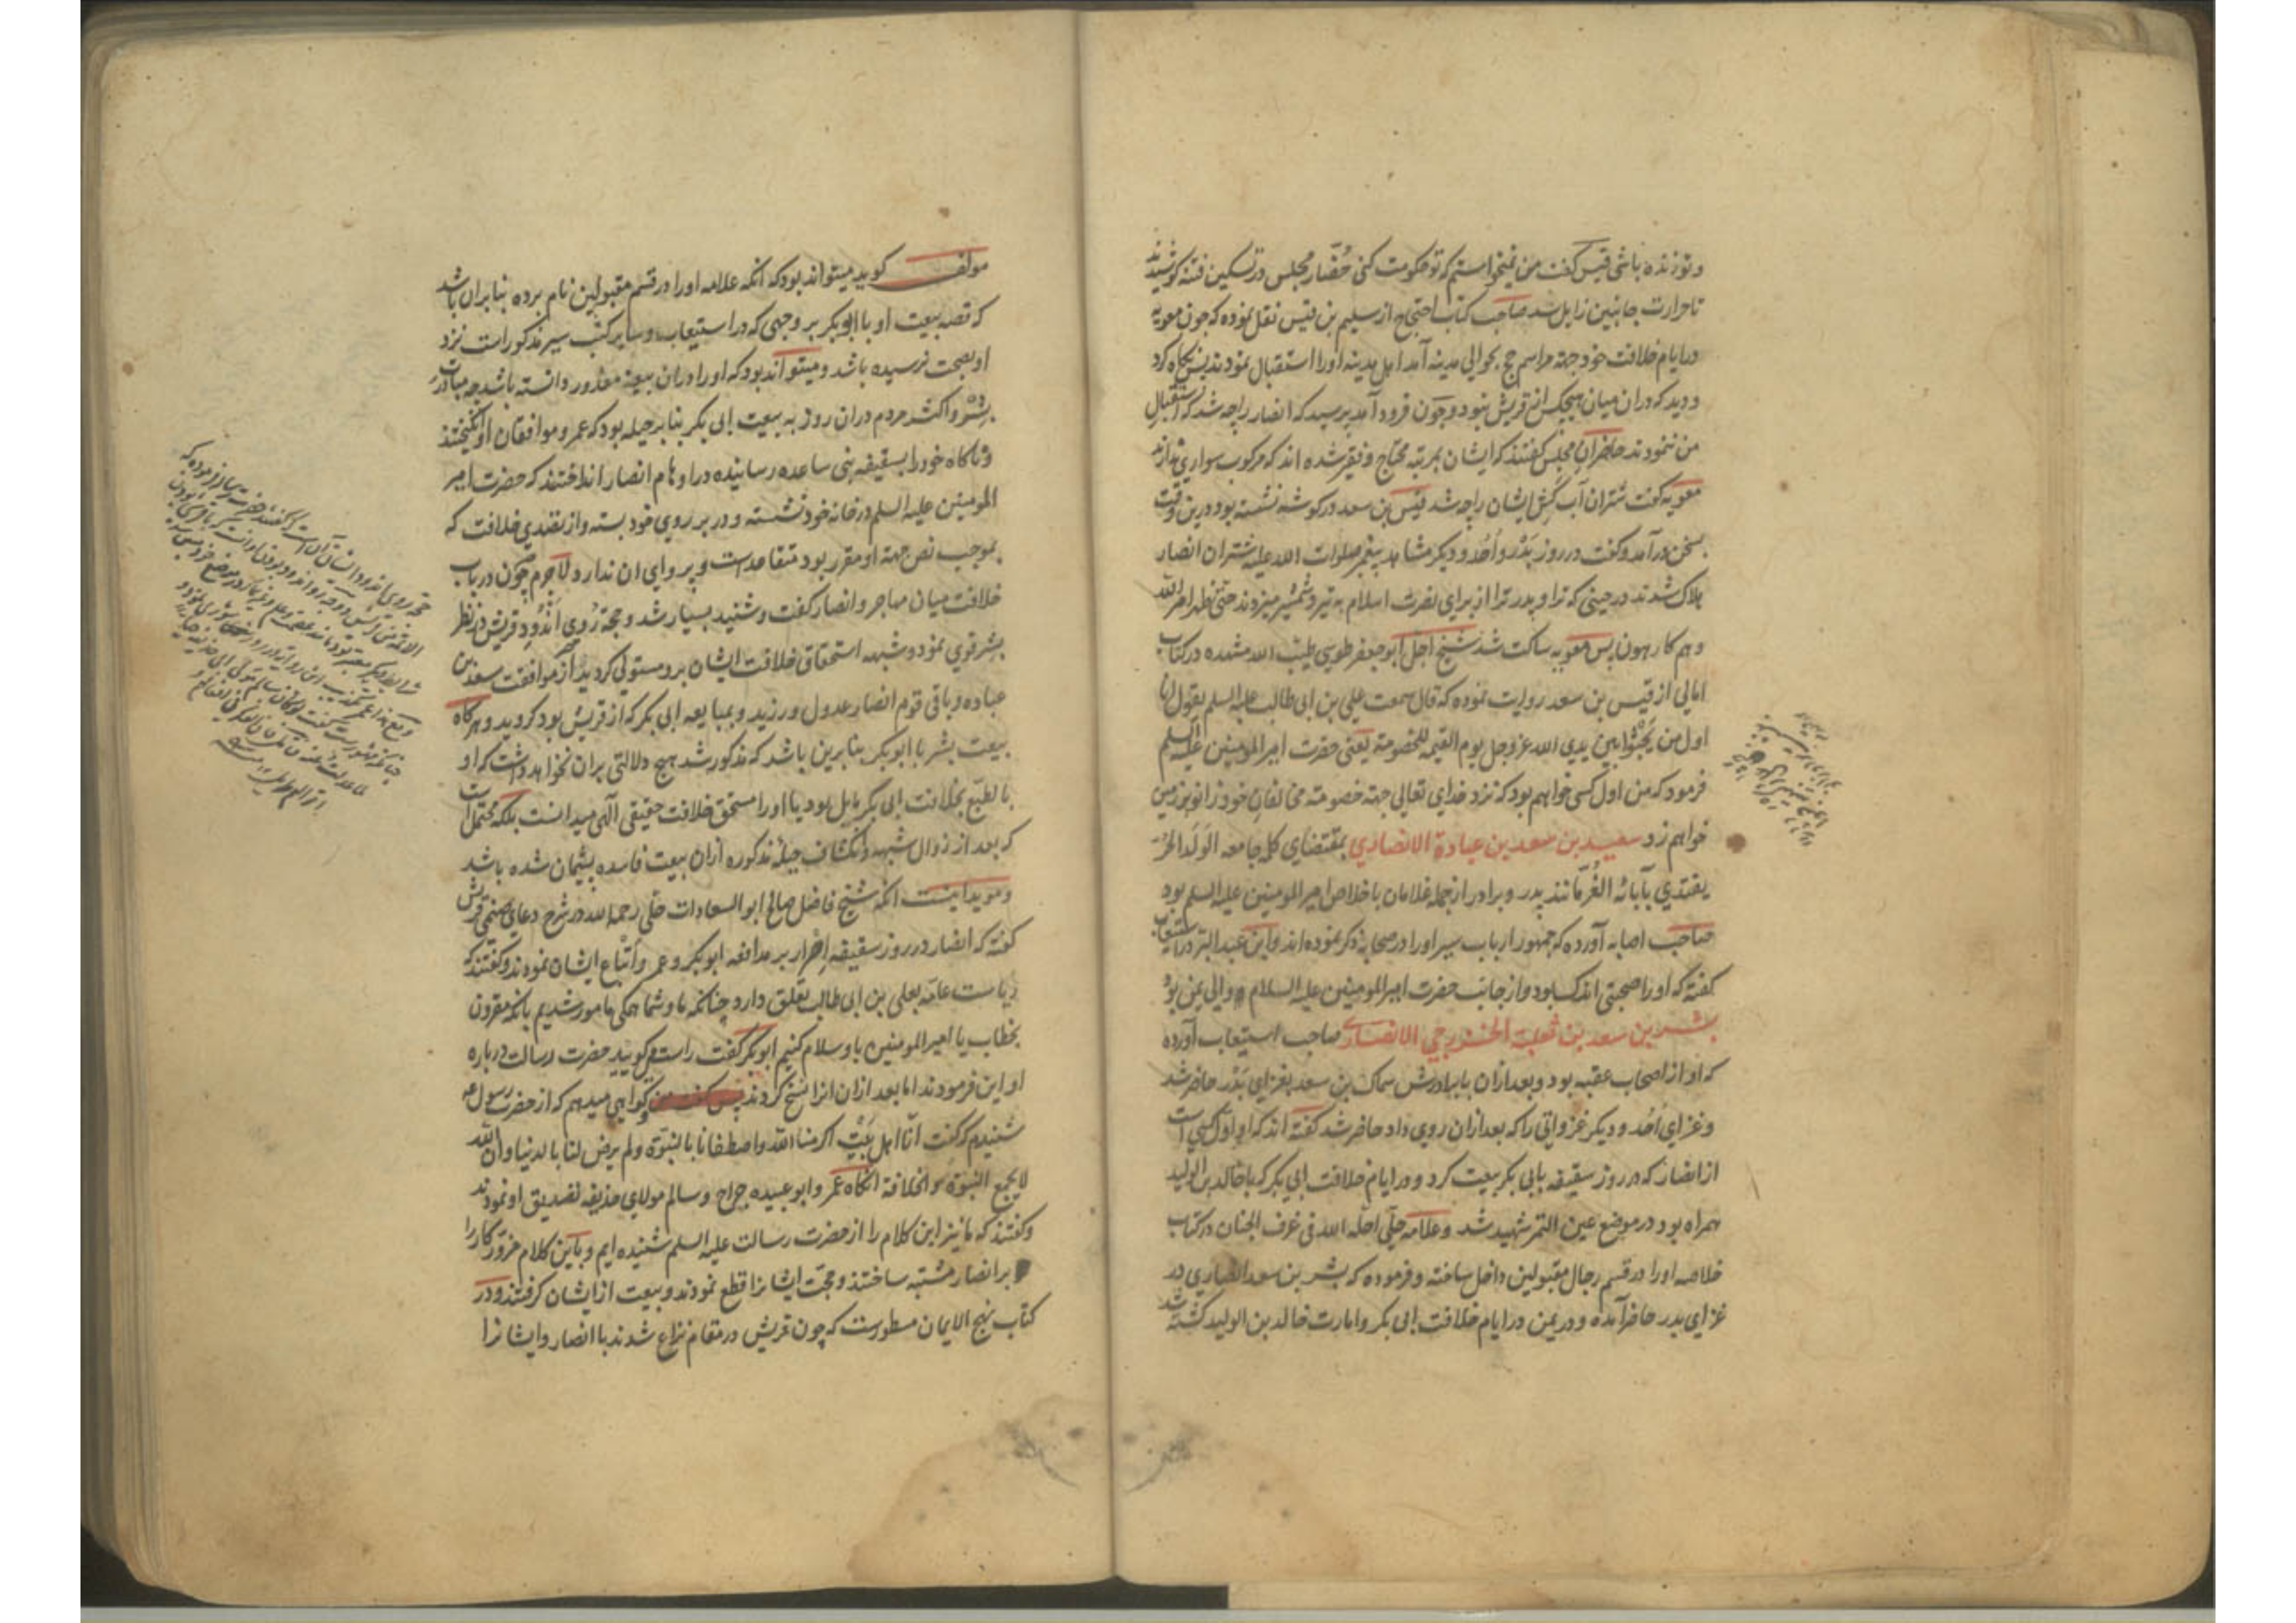 و تو زنده باشی قیس گفت من نمیخواستم که تو حکومت کنی حُضّار مجلس در تسکین فتنه کوشیدند
تا حرارت جانبین زایل شد صاحب کتاب احتجاج از سلیم بن قیس نقل نموده که چون معویه
در ایام خلافت خود جهة مراسم حج بحوالی مدینه آمد اهل مدینه او را استقبال نمودند پس نگاه کرد
و دید که در ان میان هیچکس از قریش نبود و چون فرود آمد پرسید که انصار را چه شد که استقبال
من ننمودند حاضران مجلس گفتند که ایشان بمرتبه محتاج و فقیر شده اند که مرکوب سواری ندارند
معویه گفت شتران آب کش ایشان را چه شد قیس بن سعد در کوشه نشسته بود درین وقت
بسخن در آمد و گفت در روز بَدْر و اُحُد و دیگر مشاهد پیغمبر صلوات الله علیه شتران انصار
هلاک شدند در حینی که ترا و پدر ترا از برای نصرت اسلام به تیر و شمشیر میزدند حتی ظهر امر الله
و هم کارهون پس معویه ساکت شد شیخ اجل ابو جعفر طوسی طیب الله مشهده در کتاب
امالی از قیس بن سعد روایت نموده که قال سمعت علی بن ابی طالب علیه السلم یقول انا
اول من یَجْثُوا بین یدی الله عز و جل یوم القیمه للخصومة یعنی حضرت امیر المومنین علیه السلم
فرمود که من اول کسی خواهم بود که نزد خدای تعالی جهة خصومة مخالفان خود زانو بزمین
خواهم زد سعید بن سعد بن عبادة الانصاری بمقتضای کلمه جامعه الوَلَد الحُرّ
یقتدی بآبائه الغُرّ مانند پدر و برادر از جمله غلامان با خلاص امیر المومنین علیه السلم بود
صاحب اصابه آورده که جمهور ارباب سیر او را در صحابه ذکر نموده اند و ابن عبد البر در استیعاب
گفته که او را صحبتی اندک بود و از جانب حضرت امیر المومنین علیه السلام والی یمن بود
بشر بن سعد بن ثعلبة الخزرجی الانصاری صاحب استیعاب آورده
که او از اصحاب عقبه بود و بعد ازان با برادرش سماک بن سعد بغزای بَدْر حاضر شد
و غزای اُحُد و دیگر غزواتی را که بعد ازان روی داد حاضر شد گفته اند که او اول کسی است
از انصار که در روز سقیفه بابی بکر بیعت کرد و در ایام خلافت ابی بکر که با خالد بن الولید
همراه بود در موضع عین التمر شهید شد و علامه حلّی احلّه الله فی غرف الجنان در کتاب
خلاصه او را در قسم رجال مقبولین داخل ساخته و فرموده که بشر بن سعد انصاری در
غزای بدر حاضر آمده و در یمن در ایام خلافت ابی بکر و امارت خالد بن الولید کشته شد
مولف گوید میتواند بود که انکه علامه او را در قسم مقبولین نام برده بنابران باشد
که قصه بیعت او با ابو بکر بر وجهی که در استیعاب و سایر کتب سیر مذکور است نزد
او بصحت نرسیده باشد و میتواند بود که او را دران بیعة معذور دانسته باشد چه مبادرت
بشر و اکثر مردم دران روز به بیعت ابی بکر بنا بر حیله بود که عمر و موافقان او انگیختند
و ناگاه خود را بسقیفه بنی ساعده رسانیده در اوهام انصار انداختند که حضرت امیر
المومنین علیه السلم در خانه خود نشسته و در بر روی خود بسته و از تقدی خلافت که
بموجب نص جهة او مقرر بود متقاعد است و پروای ان ندارد لاجرم چون در باب
خلافت میان مهاجر و انصار گفت و شنید بسیار شد و حجة زوی قریش در نظر
بشر قوی نمود و شبهه استحقاق خلافت ایشان برو مستولی گردید از موافقت سعد بن
عباده و باقی قوم انصار عدول ورزید و بمبایعه ابی بکر که از قریش بود گروید و هرگاه
بیعت بشر با ابو بکر بنابرین باشد که مذکور شد هیچ دلالتی بران نخواهد داشت که او
بالطبع بخلافت ابی بکر مایل بود یا او را مستحق خلافت حقیقی الهی میدانست بلکه محتمل است
که بعد از زوال شبهه و انکشاف حیله مذکوره ازان بیعت فاسده پشیمان شده باشد
و موید اینست انکه شیخ فاضل صالح ابو السعادات حلّی رحمه الله در شرح دعای صنمی قریش
گفته که انصار در روز سقیفه اصرار بر مدافعه ابو بکر و عمر و اتباع ایشان نمودند و گفتند که
ریاست عامّه بعلی بن ابی طالب تعلق دارد چنانکه ما و شما همگی مامور شدیم بانکه مقرون
بخطاب یا امیر المومنین باو سلام کنیم ابو بکر گفت راست میگویید حضرت رسالت درباره
او این فرمودند اما بعد ازان انرا نسخ کردند گواهی میدهم که از حضرت رسول
شنیدم که گفت انّا اهل بَیْت اکرمنا الله و اصطفانا بالنبوّة و لم یرض لنا بالدنیا و ان الله
لا یجمع النبوّة و الخلافة انگاه عمر و ابو عبیده جراح و سالم مولای حذیفه تصدیق او نمودند
و گفتند که ما نیز این کلام را از حضرت رسالت علیه السلم شنیده ایم و باین کلام مزوّر کار را
بر انصار مشتبه ساختند و حجّت ایشانرا قطع نمودند و بیعت از ایشان گرفتند و در
کتاب نهج الایمان مسطورست که چون قریش در مقام نزاع شدند با انصار و ایشانرا